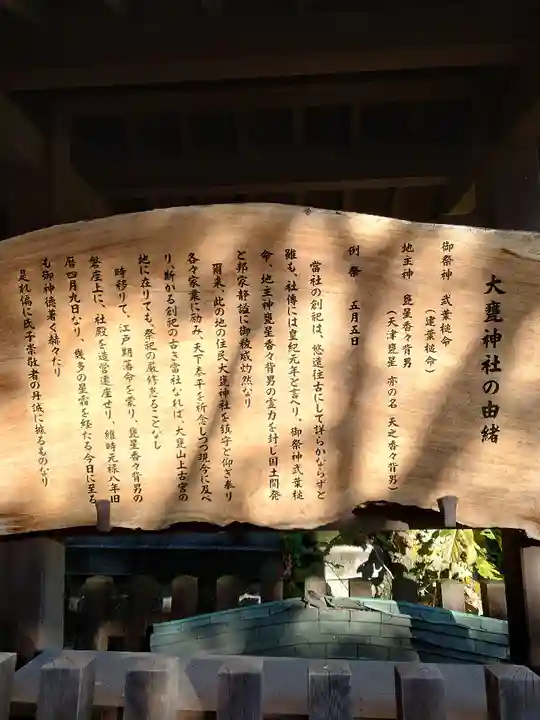 大甕神社の由緒
御祭神　武葉槌命
（建葉槌命）
地主神　甕星香々背男
（天津甕星　亦の名　天之香々背男）
例祭　五月五日
當社の創祀は、悠遠往古にして詳らかならずと
雖も、社傳には皇紀元年と言へり、御祭神武葉槌
命、地主神甕星香々背男の霊力を封じ国土開発
と邦家靜謐に御稜威灼然なり
爾来、此の地の住民大甕神社を鎮守と仰ぎ奉り
各々家業に励み、天下泰平を祈念しつつ現今に及べ
り、斯かる創祀の古き當社なれば、大甕山上古宮の
地に在りても祭祀の厳修怠ることなし
時移りて、江戸期藩命を蒙り、甕星香々背男の
磐座上に、社殿を造営遷座せり、維時元禄八年旧
暦四月九日なり、幾多の星霜を経たる今日に至る
も御神徳著く赫々たり
是れ偏に氏子崇敬者の丹誠に拠るものなり